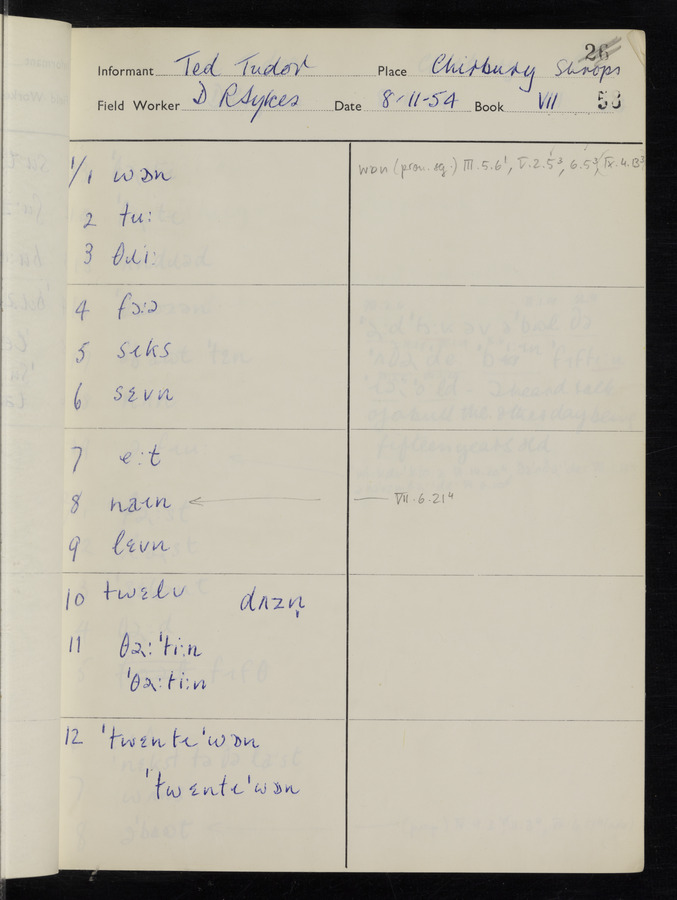 26
Informant Ted Tudor Place Chirbury Shrops
Field Worker D R Sykes Date 8-11-54 Book VII 53
1/1 wɒn
wɒn (pron. sg.) III.5.6¹, V.2.5³, 6.5³, IX.4.B³
2 tu:
3 θɹi:
4 fɔ:ə
5 sɪks
6 sɛvn
7 e:t
8 naɪn ← VII.6.21⁴
9 lɛvn
10 twɛlv dʌzn̩
11 θə:ˈti:n
ˈθə:ti:n
12 ˈtwɛnteˈwɒn
ˈtwɛnteˈwɒn